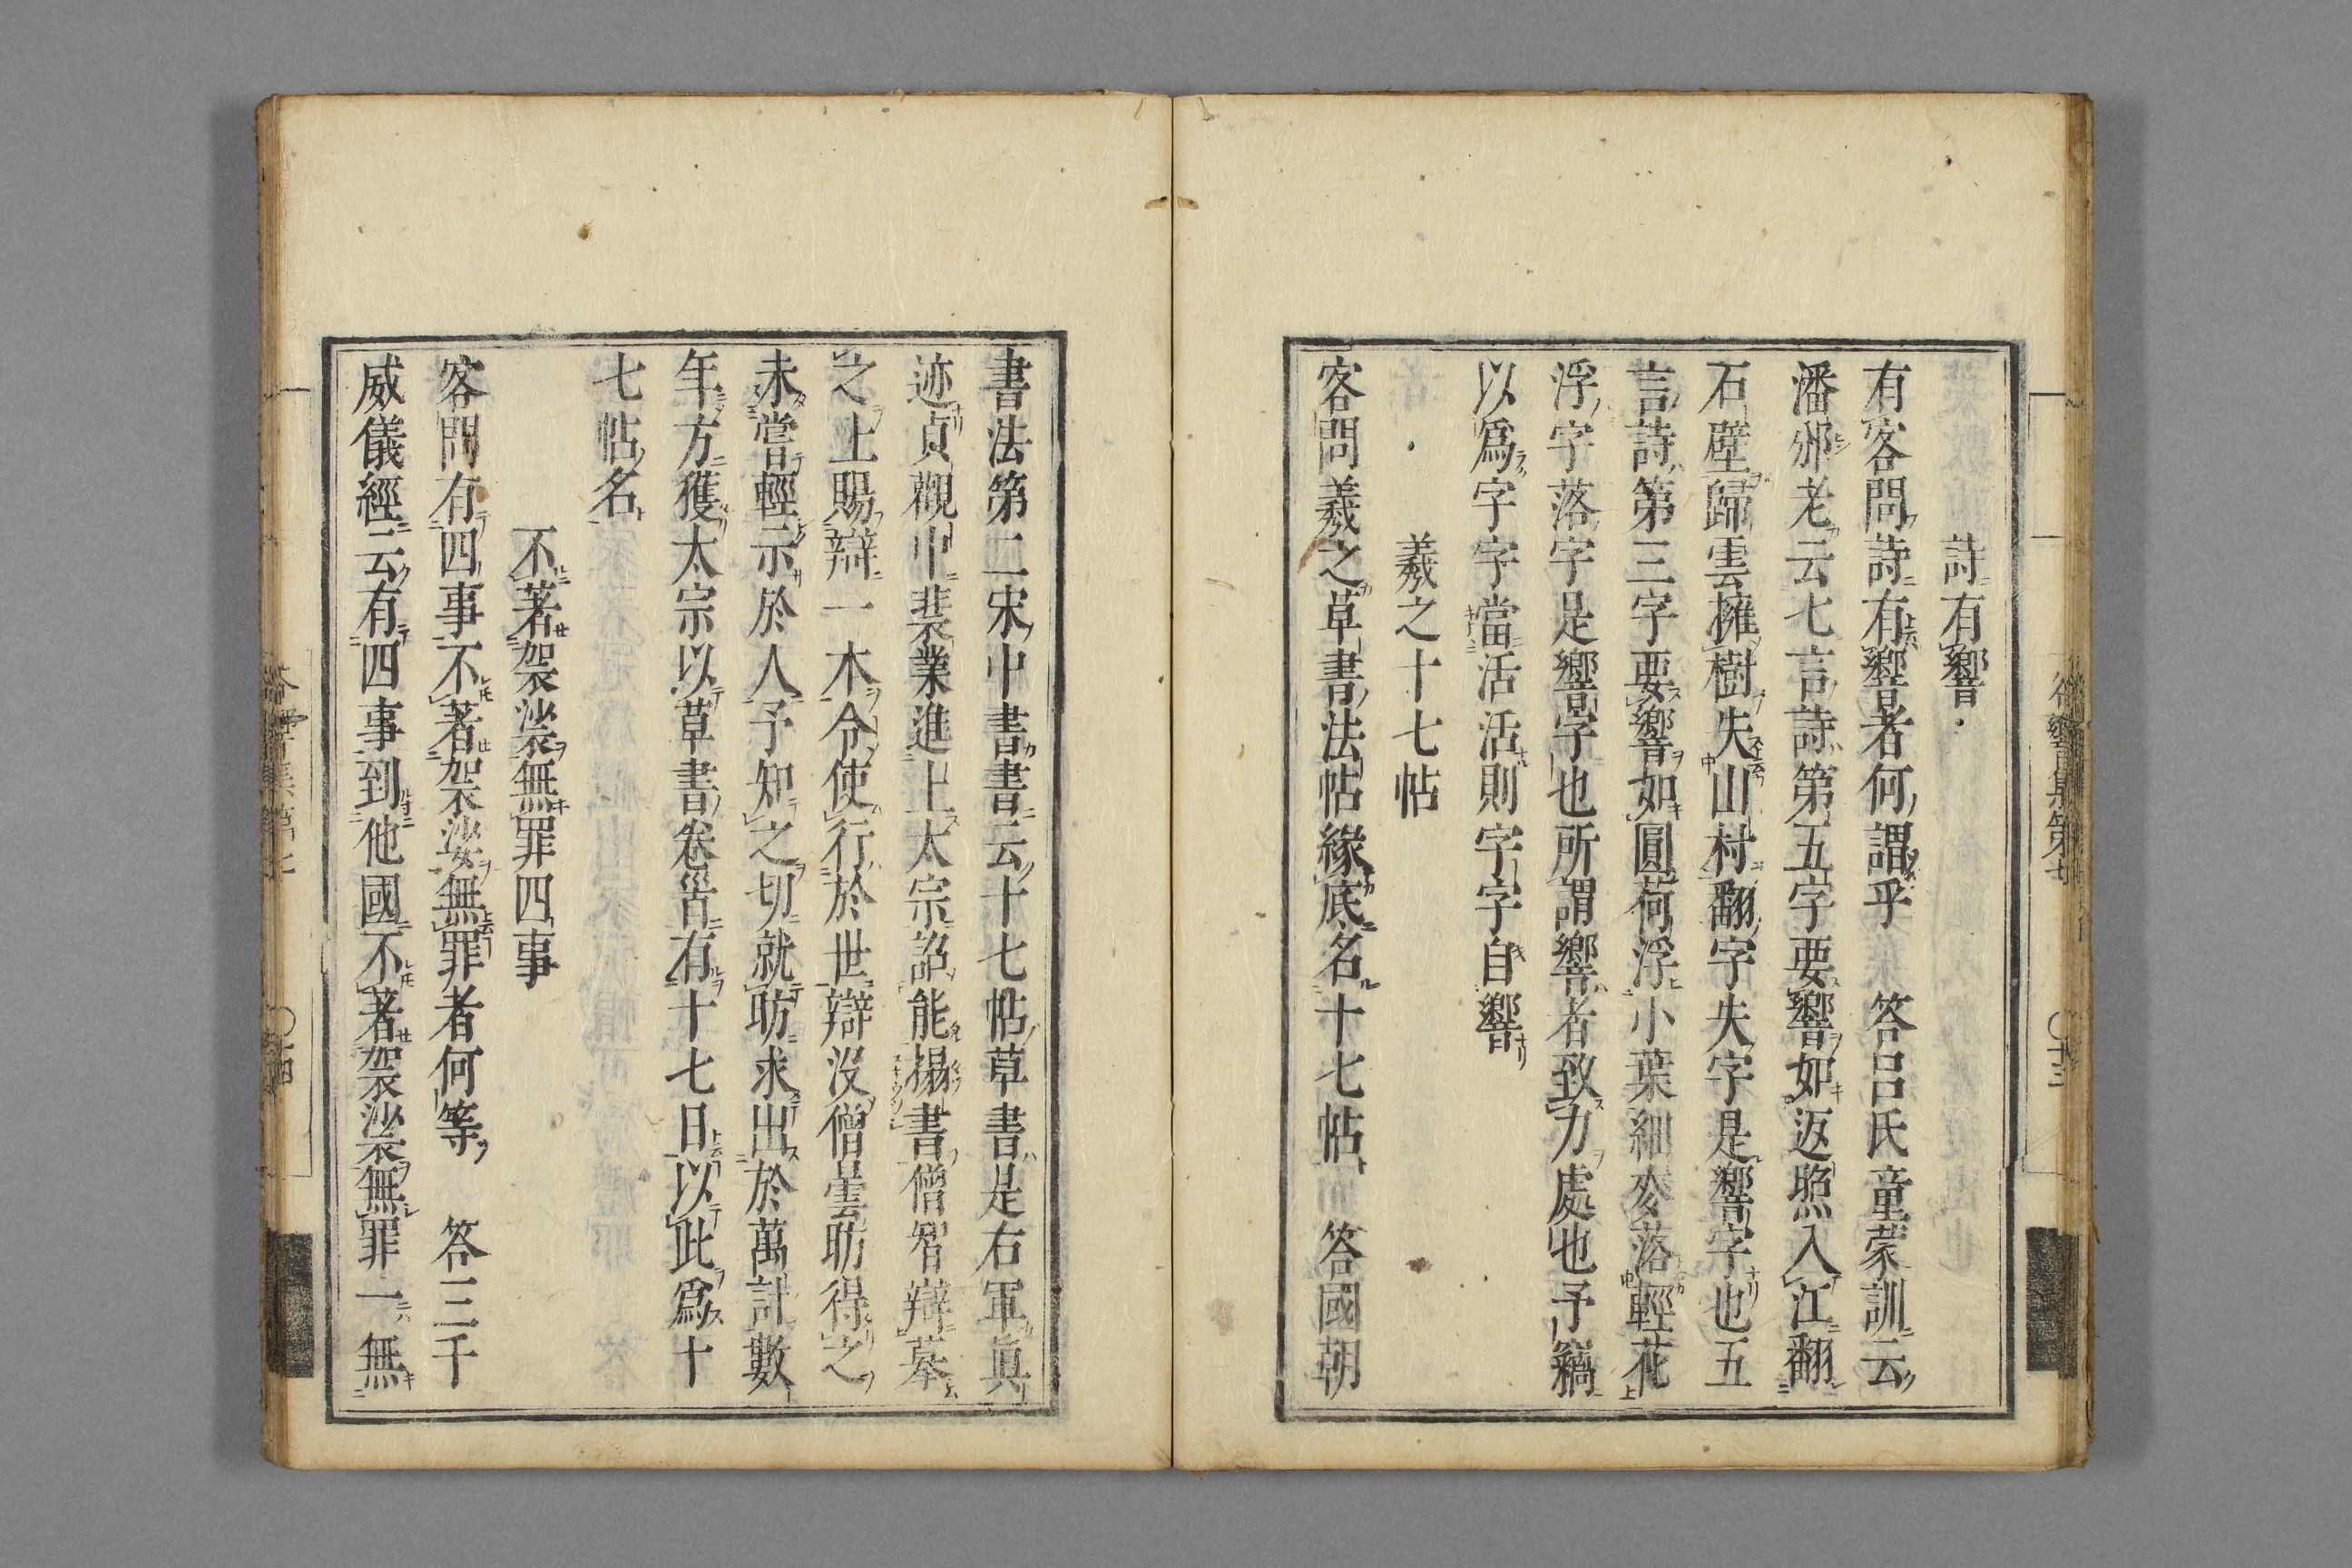 詩有響
有客問詩有響者何謂乎　答呂氏童蒙訓云
潘邠老云七言詩第五字要響如返照入江翻
石壁歸雲擁樹失山村翻字失字是響字也五
言詩第三字要響如圓荷浮小葉細麥落輕花
浮字落字是響字也所謂響者致力處也予竊
以爲字字當活活則字字自響
羲之十七帖
客問羲之草書法帖緣底名十七帖　答國朝
書法第二宋中書書云十七帖草書是右軍眞
迹貞觀中裴業進上太宗詔能搨書僧智辯摹
之上賜辯一本令使行於世辯沒僧曇昉得之
未嘗輕示於人予知之切就昉求出於萬計數
年方獲太宗以草書卷首有十七日以此爲十
七帖名
不著袈裟無罪四事
客問有四事不著袈裟無罪者何等　答三千
威儀經云有四事到他國不著袈裟無罪一無